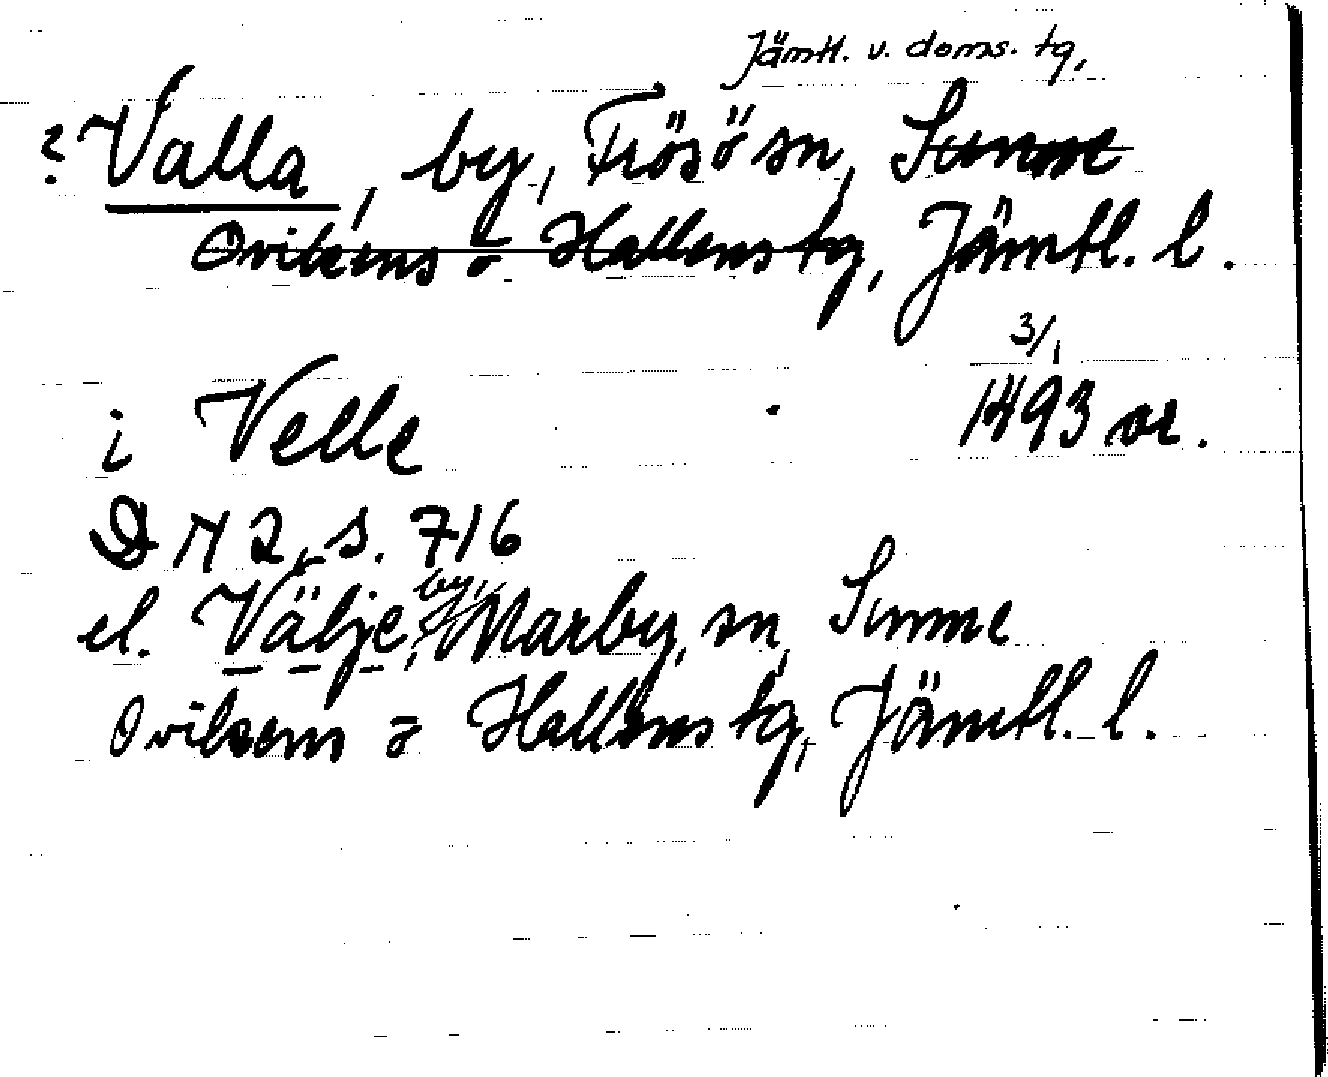 Jämtl. v. doms. tg,
? Valla, by, Frösö sn, Sunne
Ovikens o Hallens tg, Jämtl. l.
3/1
i Velle 1493 or.
DN 2, s. 716
by,
el. Välje, Marby, sn, Sunne
Ovikens o Hallens tg, Jämtl. l.